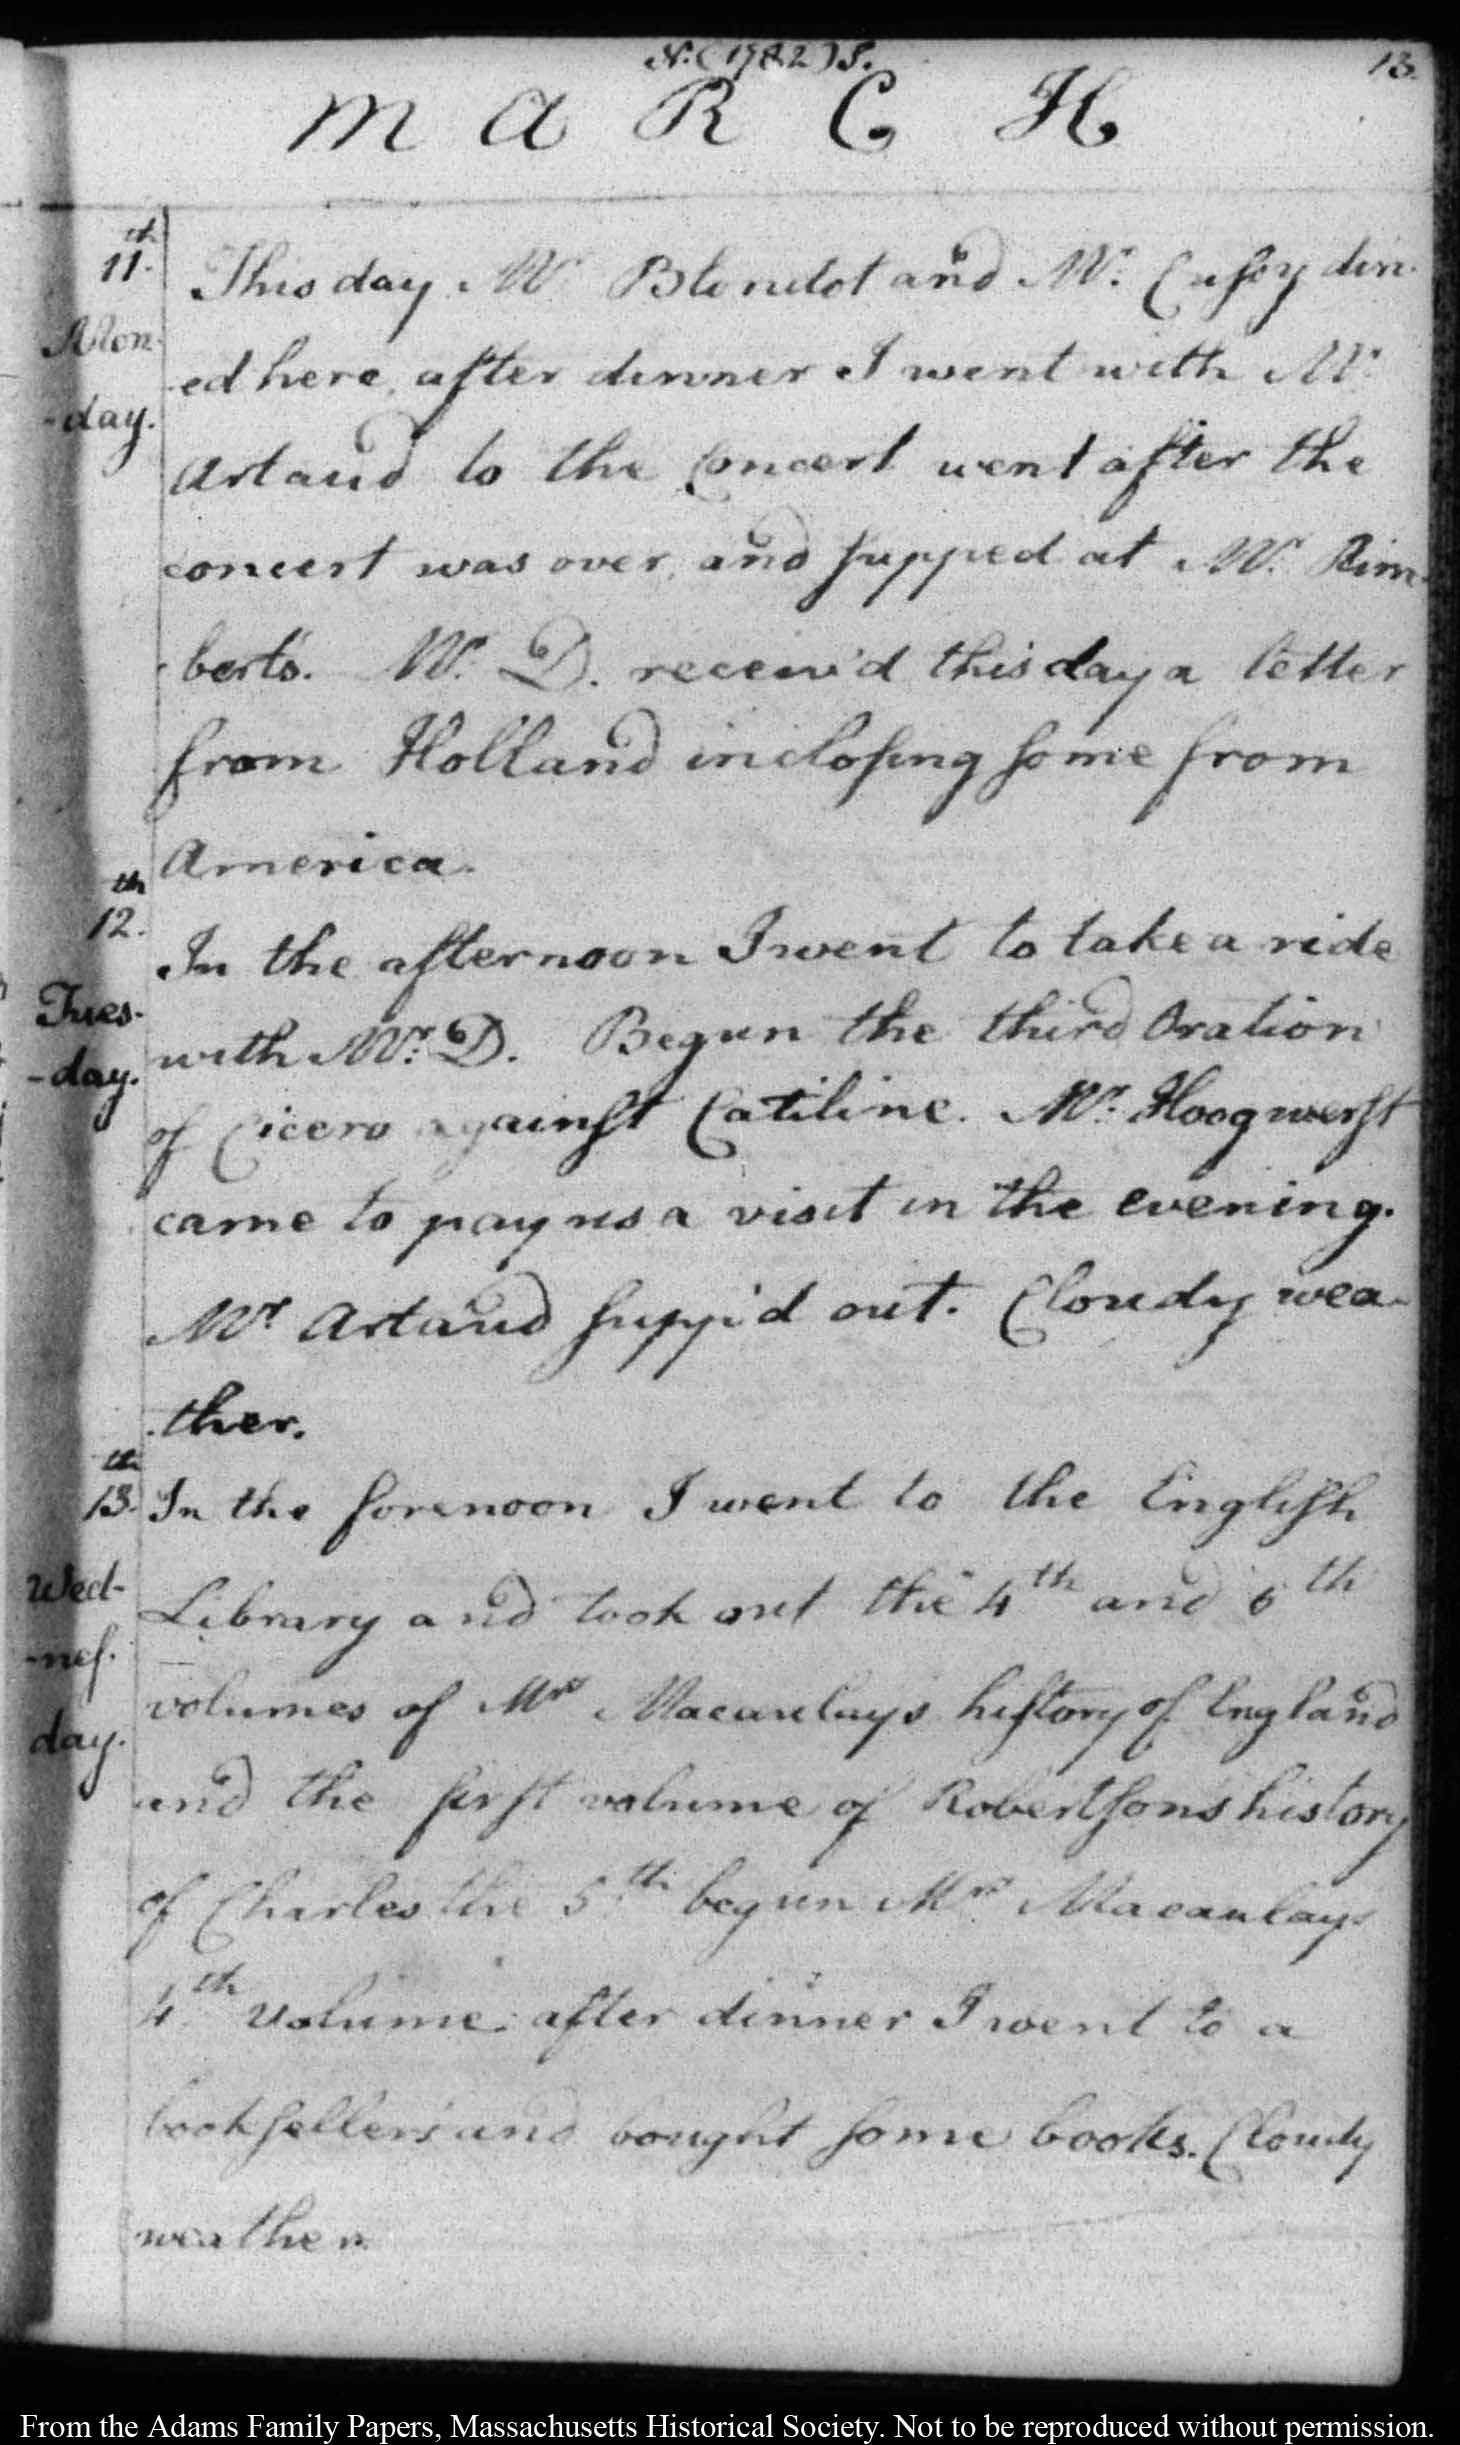 N. (1782) S.
13.
MARCH
11th.
Mon-
-day.
This day Mr. Blondot and Mr. din-
ed here, after dinner I went with Mr.
Artaud to the Concert went after the
concert was over, and ſupped at Mr. Rim-
-bert's. Mr. D. receiv'd this day a letter
from Holland incloſing ſome from
America.
12th.
Tues-
-day.
In the afternoon I went to take a ride
with Mr. D. Begun the third Oration
of Cicero againſt Catiline. Mr. Hoogwerſt
came to pay us a visit in the evening.
Mr. Artaud ſupp'd out. Cloudy wea-
-ther.
13th.
Wed-
-neſ-
day.
In the forenoon I went to the Engliſh
Library and took out the 4th and 5th
volumes of Mrs Macaulays hiſtory of England
and the firſt volume of Robertſons history
of Charles the 5th. begun Mrs. Macaulays
4th. volume. after dinner I went to a
bookſellers and bought ſome books. Cloudy
weather.
From the Adams Family Papers, Massachusetts Historical Society. Not to be reproduced without permission.